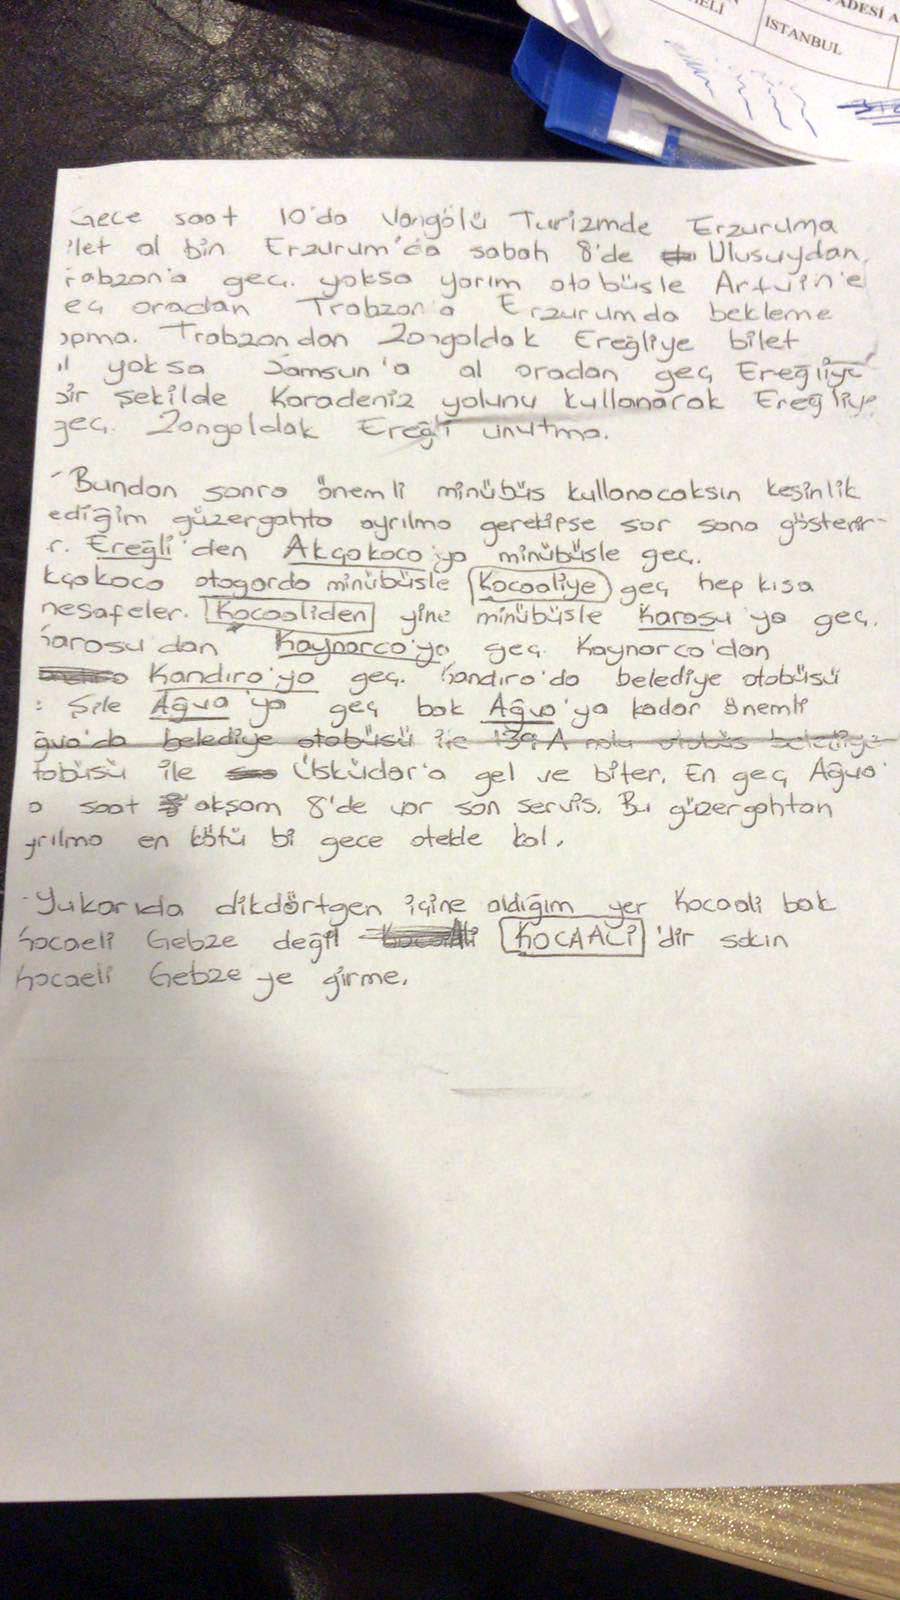 ADESİ A
ELİ
İSTANBUL
Gece saat 10'da Vangölü Turizmde Erzuruma
ilet al bin Erzurum'da sabah 8'de Ulusuydan
rabzon'a geç. yoksa yarım otobüsle Artvin'e
eç oradan Trabzon'a Erzurumda bekleme
apma. Trabzondan Zongoldak Ereğliye bilet
al yoksa Samsun'a al oradan geç Ereğliye
bir şekilde Karadeniz yolunu kullanarak Ereğliye
geç. Zongoldak Ereğli unutma.
- Bundan sonra önemli minübüs kullanacaksın kesinlik
ediğim güzergahta ayrılma gerekirse sor sana gösterir-
r. Ereğli'den Akçakoca'ya minübüsle geç.
kçakoca otogarda minübüsle Kocaaliye geç hep kısa
mesafeler. Kocaaliden yine minübüsle Karasu'ya geç.
Karasu'dan Kaynarca'ya geç. Kaynarca'dan
Kandıra'ya geç. Kandıra'da belediye otobüsü
: Şile Ağva'ya geç bak Ağva'ya kadar önemli
ğva'da belediye otobüsü ile 139 A nolu otobüs belediye
tobüsü ile Üsküdar'a gel ve biter. En geç Ağva'
a saat akşam 8'de var son servis. Bu güzergahtan
yrılma en kötü bi gece otelde kal.
- Yukarıda dikdörtgen içine aldığım yer Kocaali bak
Kocaeli Gebze değil KOCAALİ'dir sakın
Kocaeli Gebze ye girme.